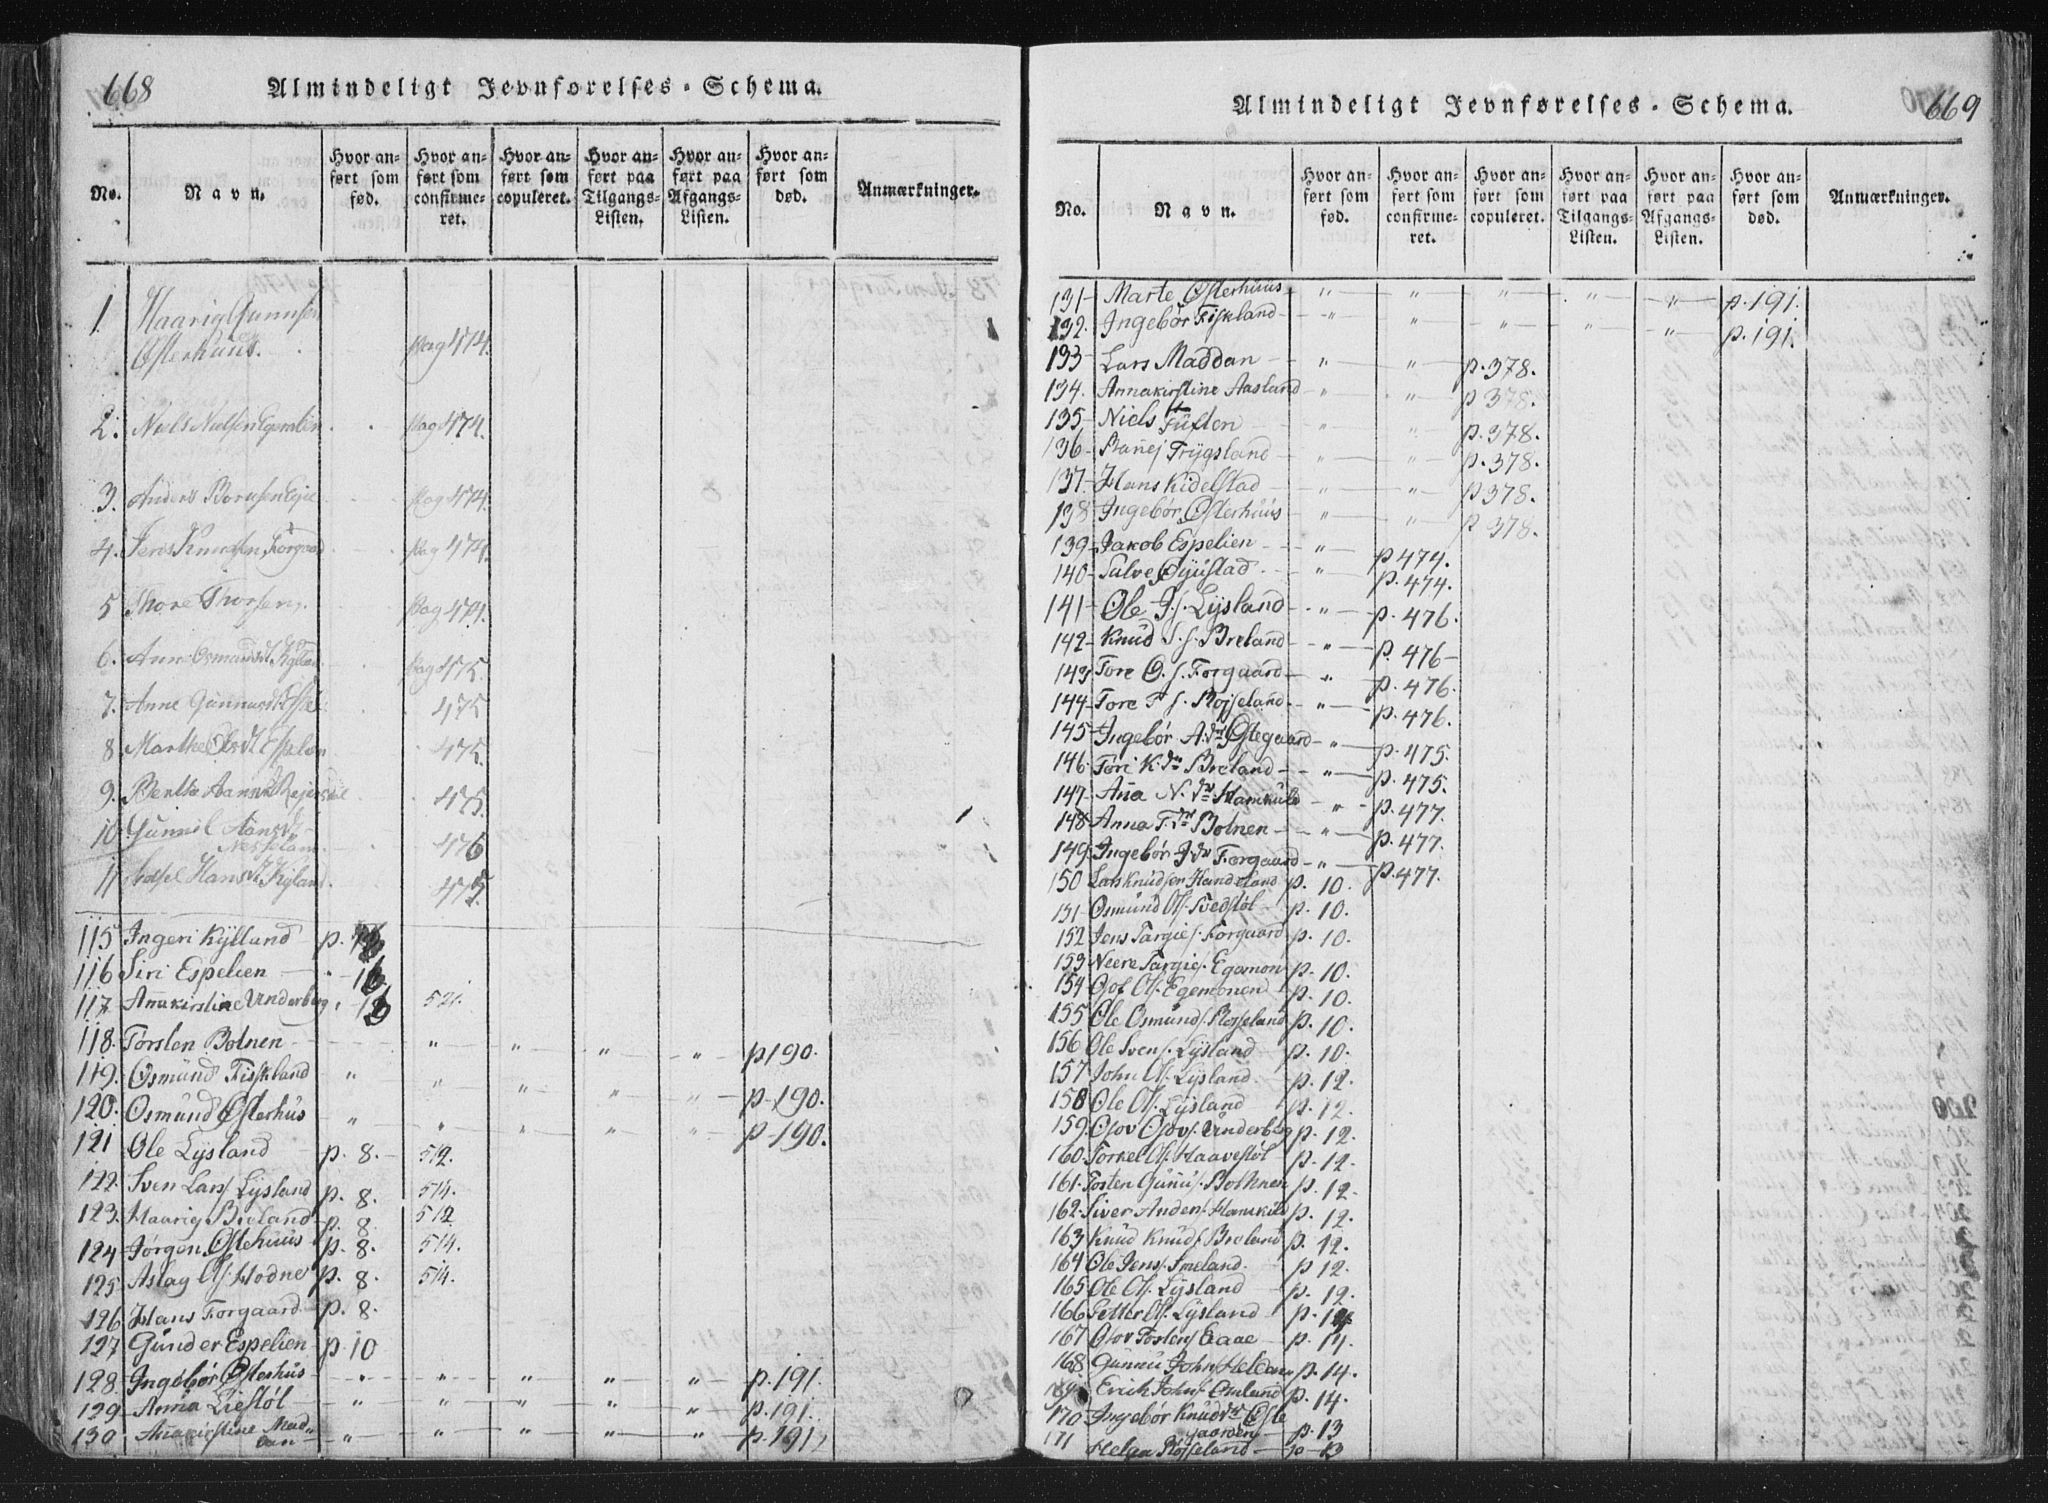 668 Almindeligt Jevnførelses-Schema.
No. Navn. Hvor anført som fød. Hvor anført som confirmeret. Hvor anført som copuleret. Hvor anført paa Tilgangs-Listen. Hvor anført paa Afgangs-Listen. Hvor anført som død. Anmærkninger.
1. Haarig Gunnsen
Osterhuus. Pag 474.
2. Niels Nielsen Pag 474.
3. Anders Pag 474.
4. Jens Knudsen Forgaard Pag 474.
5 Thore Thorsen Pag 474.
6. Anne Osmundsdt Pag 475.
7. Anne Gunnarsdt 475
8 Marthe Olsdt Espelien 475.
9. Berthe 475.
10 Gunnil
476
11 Hansdt Kylland. 475.
115 Ingeri Kylland p.
116 Siri Espelien 16
117 Annakirstine Underberg 521.
118. Torsten Botnen " " " " p 190.
119. Osmund Fiskland " " " " " p 190.
120. Osmund Osterhus " " " " " p 190.
121 Ole Lysland p. 8. 512.
122. Sven Lars. Lysland p. 8. 514.
123. Haarig Breland p. 8. 512
124 Jørgen Ostehuus p. 8. 514.
125. Aslag Ols. Hodne p. 8. 514.
126 Hans Forgaard p. 8.
127 Gunder Espelien p. 10
128. Ingebør Osterhus " " " " " p. 191.
129 Anna Liestøl " " " " " p. 191.
130 Annakirstine Mad-
dan " " " " " p. 191,
Almindeligt Jevnførelses-Schema. 669
No. Navn. Hvor anført som fød. Hvor anført som confirmeret. Hvor anført som copuleret. Hvor anført paa Tilgangs-Listen. Hvor anført paa Afgangs-Listen. Hvor anført som død. Anmærkninger.
131 Marte Osterhuus " " " " " p. 191.
132. Ingebør Fiskland " " " " " p. 191.
133 Lars Maddan " " p. 378.
134. Annakirstine Aasland " " p 378.
135 Niels Tuften " " p. 378.
136 Frygsland " " p. 378.
137. Hans Kidelstad " " p 378.
138 Ingebør Osterhuus " " p 378.
139 Jakob Espelien " p. 474.
140 Salve Øyustad " p. 474.
141 Ole J s. Lysland " p. 476.
142 Knud S. s. Breland " p. 476
143 Tore O. s. Forgaard " p. 476.
144 Tore P s. Røsseland " p. 476.
145 Ingebør A. dtr Ostegaard " p. 475.
146. Tøri K. dtr Breland " p. 475.
147 Aña N. dtr Hamkuld " p. 477.
148 Anna T. dtr Botnen " p. 477.
149 Ingebør J dtr Forgaard " p. 477.
150 Lars Knudsen Handeland p. 10.
151 Osmund Ols. Svedstøl p. 10.
152 Jens Targies. Forgaard p. 10.
153 Neere Targies. Egemon p. 10.
154 Ols. Egemonen p. 10.
155 Ole Osmunds. Røsseland p. 10.
156 Ole Svens. Lysland p. 10.
157 John Ols. Lysland p. 12.
158 Ole Ols. Lysland p. 12.
159 Olov Olovs. Underberg p. 12.
160 Torkel Ols. Haavestøl p. 12.
161. Tosten Gunus. Bothnen p. 12.
162. Siver Anders. Hamkild p. 12.
163 Knud Knuds Breland p. 12.
164 Ole Jens. Smeland p 12.
165 Ole Ols. Lysland p. 12.
166 Petter Ols. Lysland p. 14
167 Olov Tostens. Eaae p. 14.
168 Gunnu Johns Helden p. 14.
169 Erich Johns. Omland p. 14.
170 Ingebør Knudsdtr Oste
gaarden p. 13
171 Helga Røsseland p 13